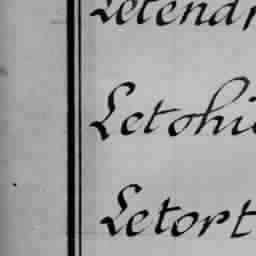 Letend
Letohi
Letort